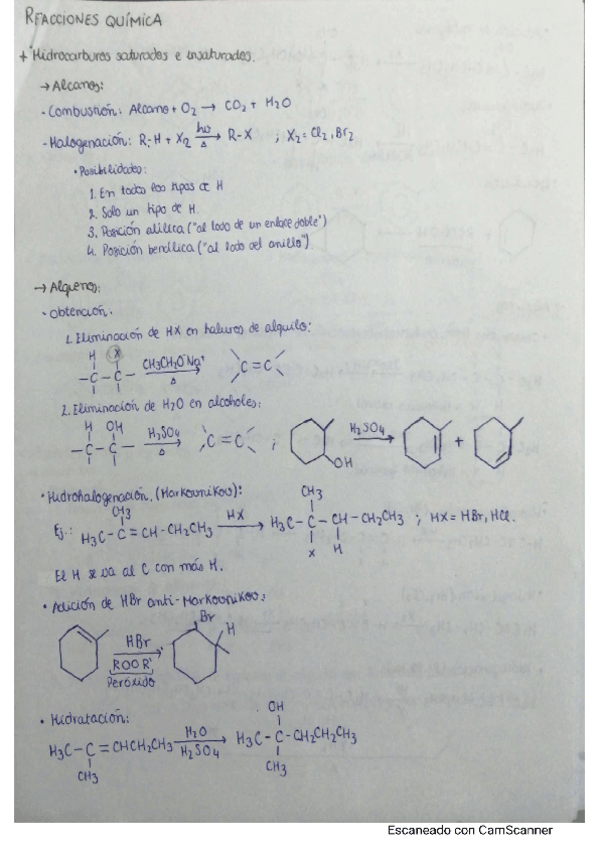 REACCIONES QUÍMICA
+ Hidrocarburos saturados e insaturados.
→ Alcanos:
• Combustión: Alcano + O2 → CO2 + H2O
- Halogenación: R-H + X2 hν/Δ → R-X ; X2 = Cl2, Br2
• Posibilidades:
1. En todos los tipos de H
2. Solo un tipo de H.
3. Posición alílica ("al lado de un enlace doble")
4. Posición bencílica ("al lado del anillo").
→ Alquenos:
• Obtención.
1. Eliminación de HX en haluros de alquilo:
H X
-C-C- CH3CH2O⁻Na⁺/Δ → C=C
2. Eliminación de H2O en alcoholes:
H OH
-C-C- H2SO4/Δ → C=C ; OH H2SO4 → +
• Hidrohalogenación. (Markovnikov):
CH3 CH3
Ej.: H3C-C=CH-CH2CH3 HX → H3C-C-CH-CH2CH3 ; HX = HBr, HCl.
X H
El H se va al C con más H.
• Adición de HBr anti-Markovnikov:
Br
HBr → H
ROOR'
Peróxido
• Hidratación:
OH
H3C-C=CHCH2CH3 H2O/H2SO4 → H3C-C-CH2CH2CH3
CH3 CH3
Escaneado con CamScanner